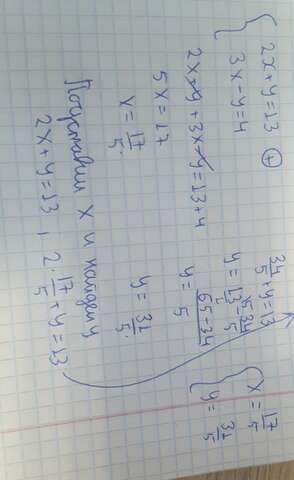 { 2x+y=13 (+)
{ 3x-y=4
2x+y+3x-y=13+4
5x=17
x=17/5.
Подставим x и найдем y
2x+y=13, 2·17/5+y=13
34/5+y=13
y=13-34/5
y=(65-34)/5
y=31/5
{ x=17/5
{ y=31/5